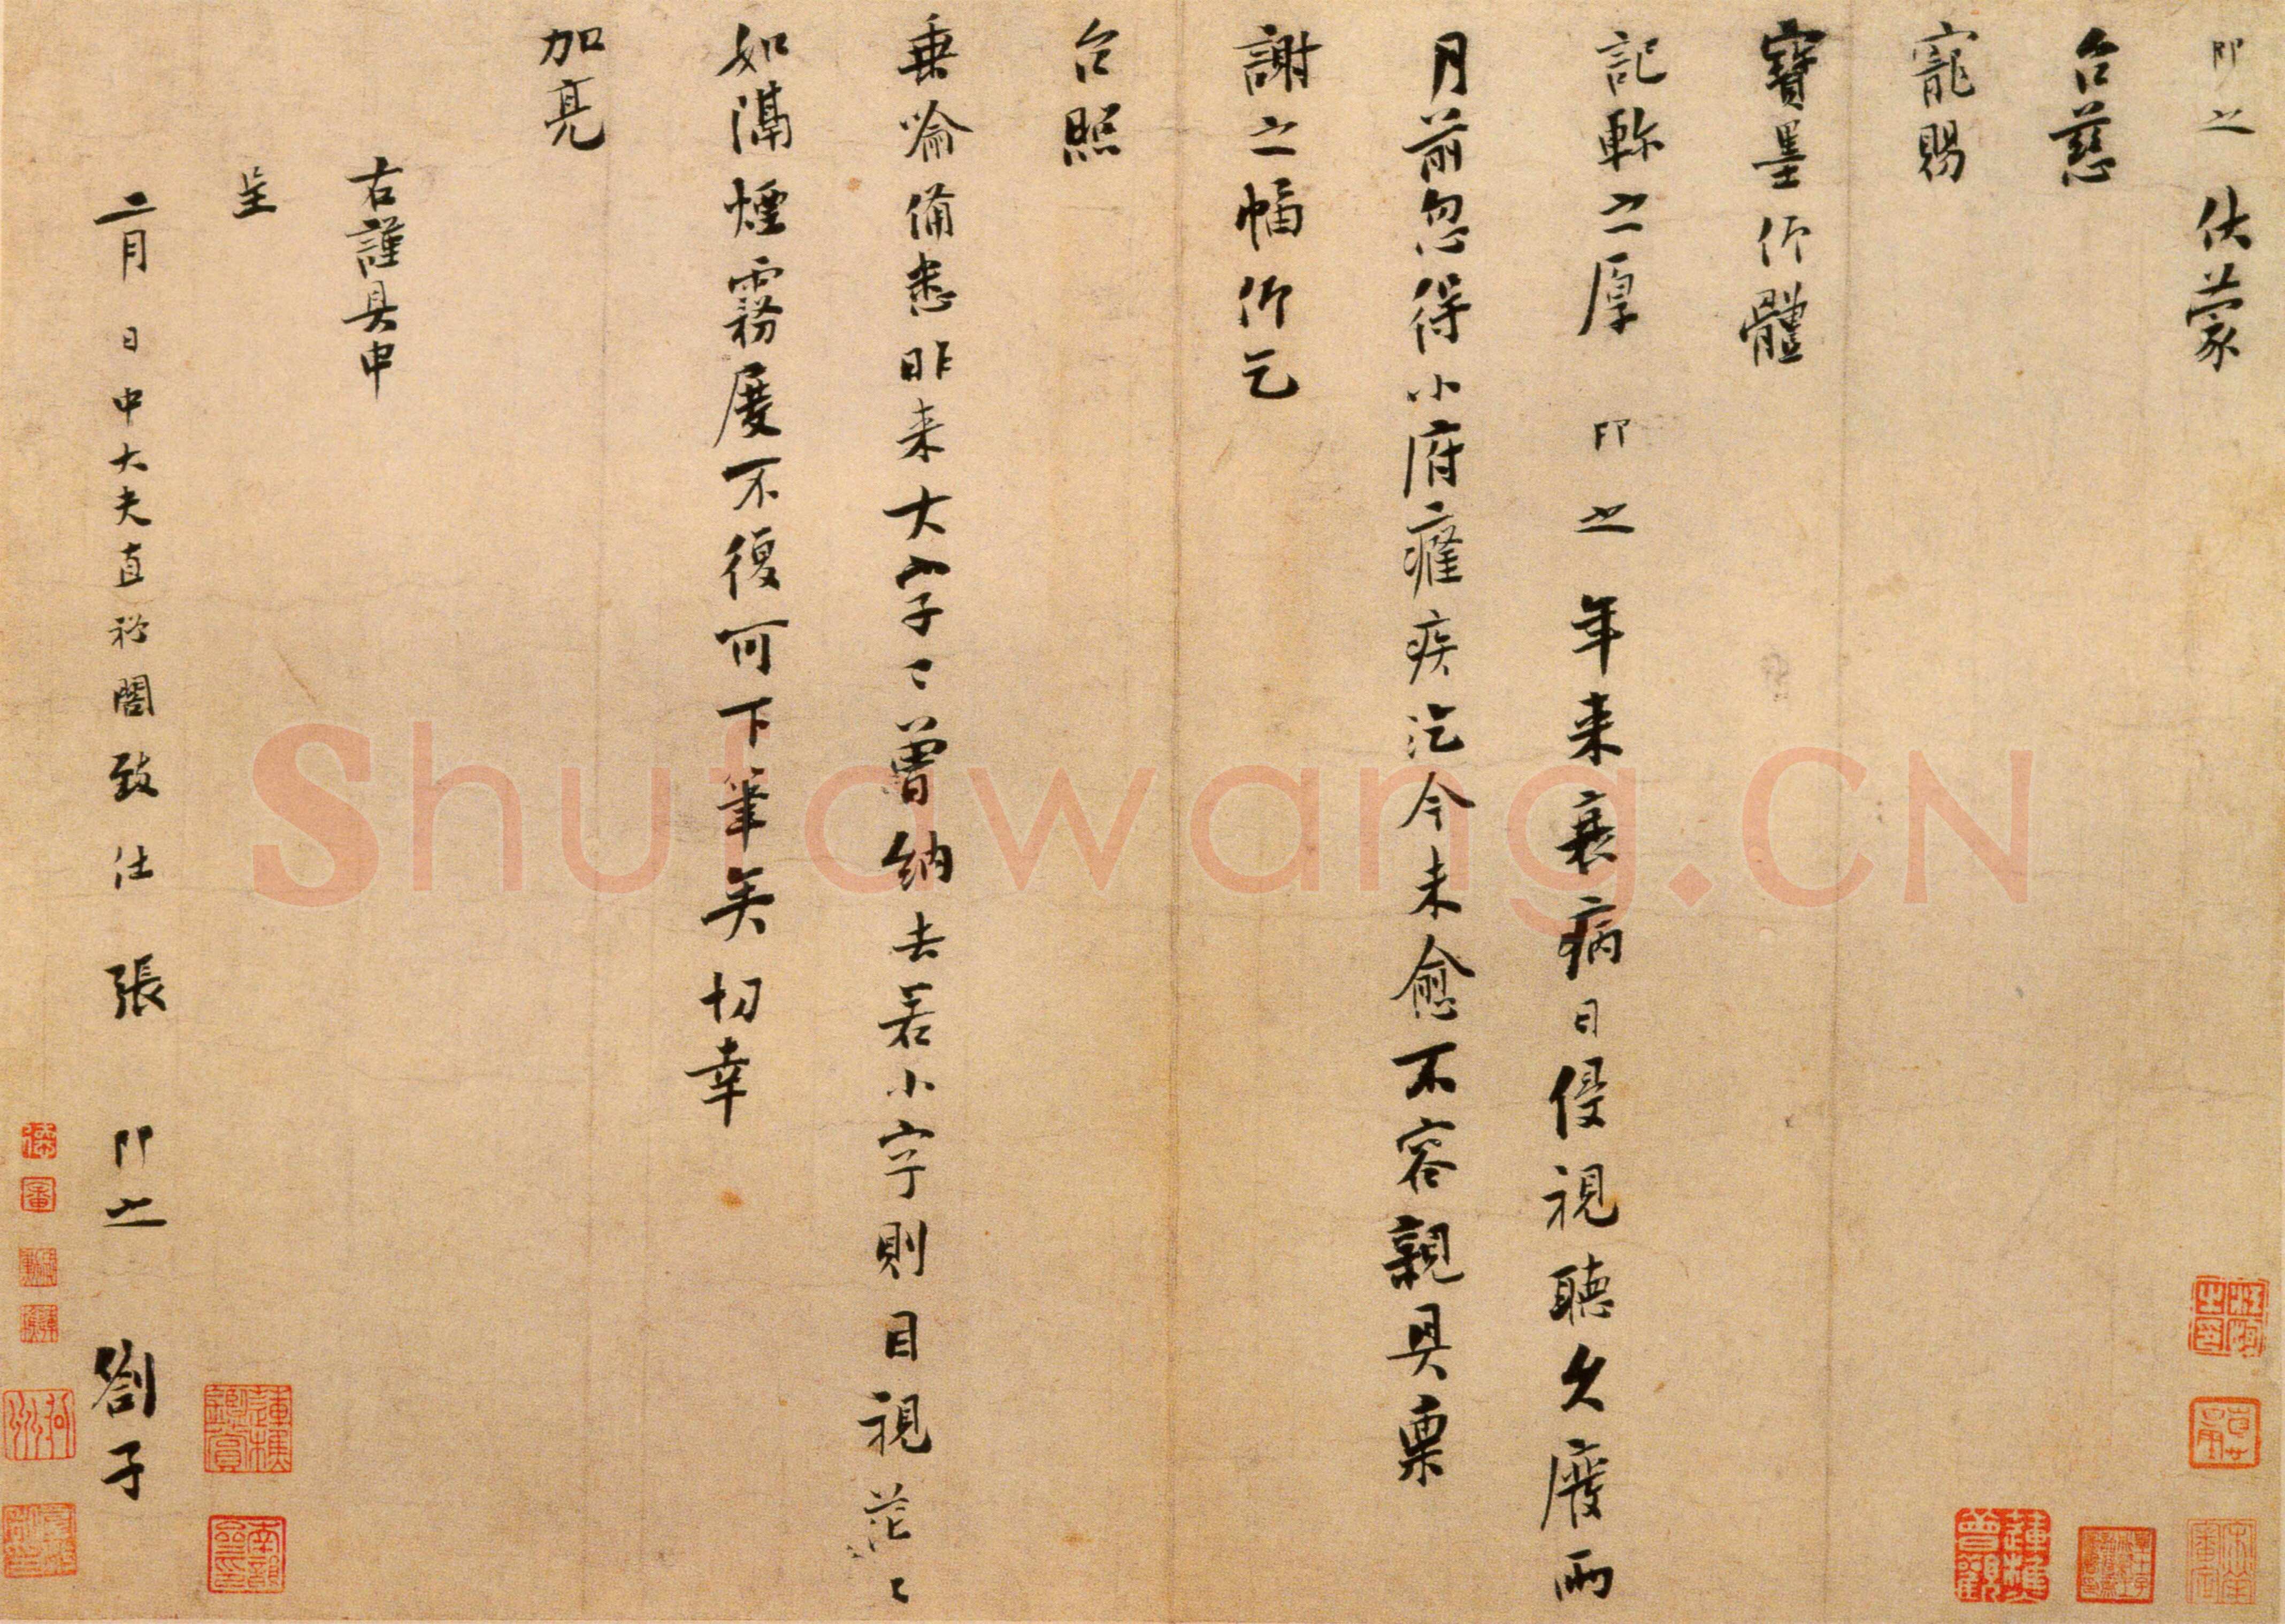 即之伏蒙
台慈
寵賜
寶墨仰體
記軫之厚即之年来衰病日侵視聽久廢兩
月前忽得小府癰疾迄今未愈不容親具稟
謝之幅仰乞
台照
垂喻備悉昨来大字字曾納去若小字則目視茫茫
如隔煙霧屡不復可下筆矣切幸
加亮
右謹具申
呈
二月日中大夫直祕閣致仕張即之劄子
Shufawang.CN